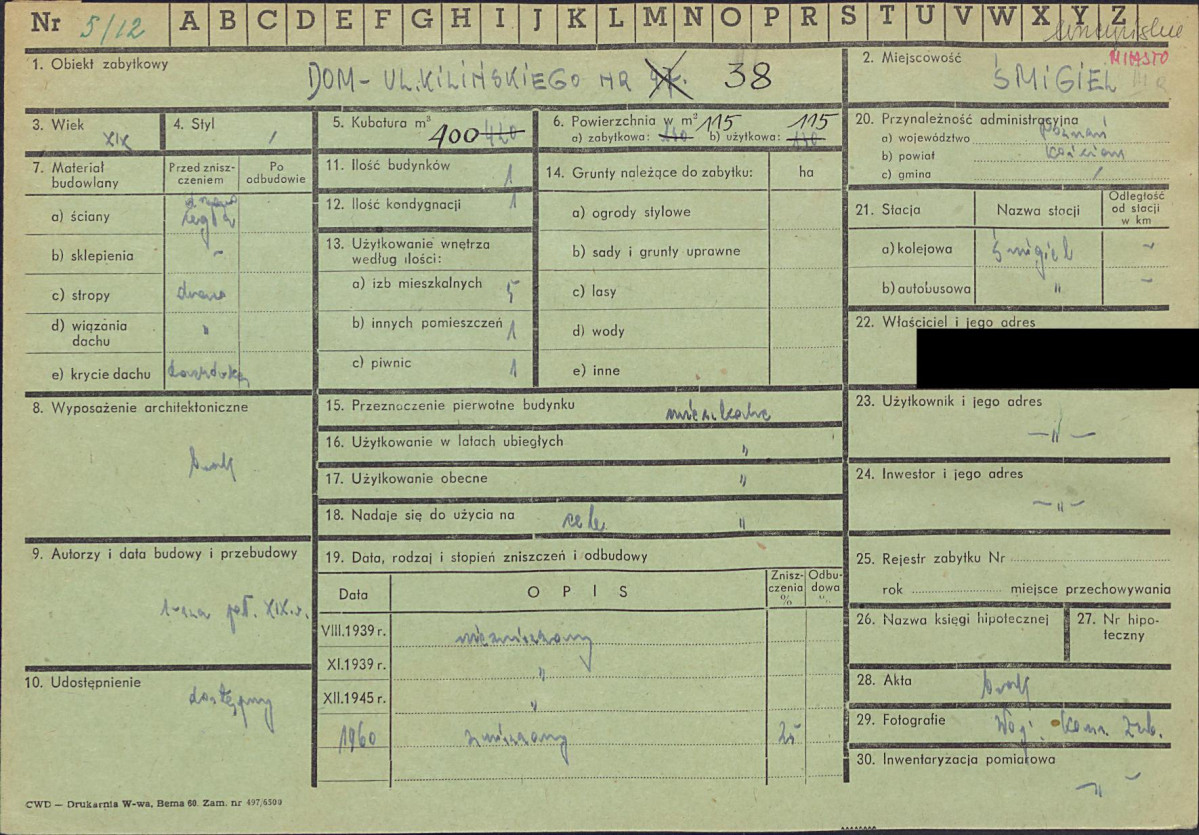 Nr 5/12 A B C D E F G H I J K L M N O P R S T U V W X Y Z
1. Obiekt zabytkowy
DOM - UL. KILIŃSKIEGO NR 38
2. Miejscowość
MIASTO
ŚMIGIEL
3. Wiek
XIX
4. Styl
/
5. Kubatura m³
400 420
6. Powierzchnia w m²
a) zabytkowa: 115 b) użytkowa: 115
20. Przynależność administracyjna
a) województwo Poznań
b) powiat Kościan
c) gmina /
7. Materiał budowlany
Przed zniszczeniem
Po odbudowie
a) ściany cegła
b) sklepienia -
c) stropy drewno
d) wiązania dachu "
e) krycie dachu dachówka
11. Ilość budynków 1
12. Ilość kondygnacji 1
13. Użytkowanie wnętrza według ilości:
a) izb mieszkalnych 5
b) innych pomieszczeń 1
c) piwnic 1
14. Grunty należące do zabytku: ha
a) ogrody stylowe
b) sady i grunty uprawne
c) lasy
d) wody
e) inne
21. Stacja
Nazwa stacji
Odległość od stacji w km
a) kolejowa Śmigiel -
b) autobusowa " -
22. Właściciel i jego adres
8. Wyposażenie architektoniczne
brak
15. Przeznaczenie pierwotne budynku mieszkalne
16. Użytkowanie w latach ubiegłych "
17. Użytkowanie obecne "
18. Nadaje się do użycia na cele "
23. Użytkownik i jego adres
-"-
24. Inwestor i jego adres
-"-
9. Autorzy i data budowy i przebudowy
poł. XIX w.
19. Data, rodzaj i stopień zniszczeń i odbudowy
Data
OPIS
Zniszczenia %
Odbudowa %
VIII.1939 r. niezniszczony
XI.1939 r. "
XII.1945 r. "
1960 zniszczony 25
25. Rejestr zabytku Nr
rok miejsce przechowywania
26. Nazwa księgi hipotecznej
27. Nr hipoteczny
10. Udostępnienie
dostępny
28. Akta brak
29. Fotografie Woj. Kons. Zab.
30. Inwentaryzacja pomiarowa
-"-
CWD — Drukarnia W-wa, Bema 60. Zam. nr 497/6500